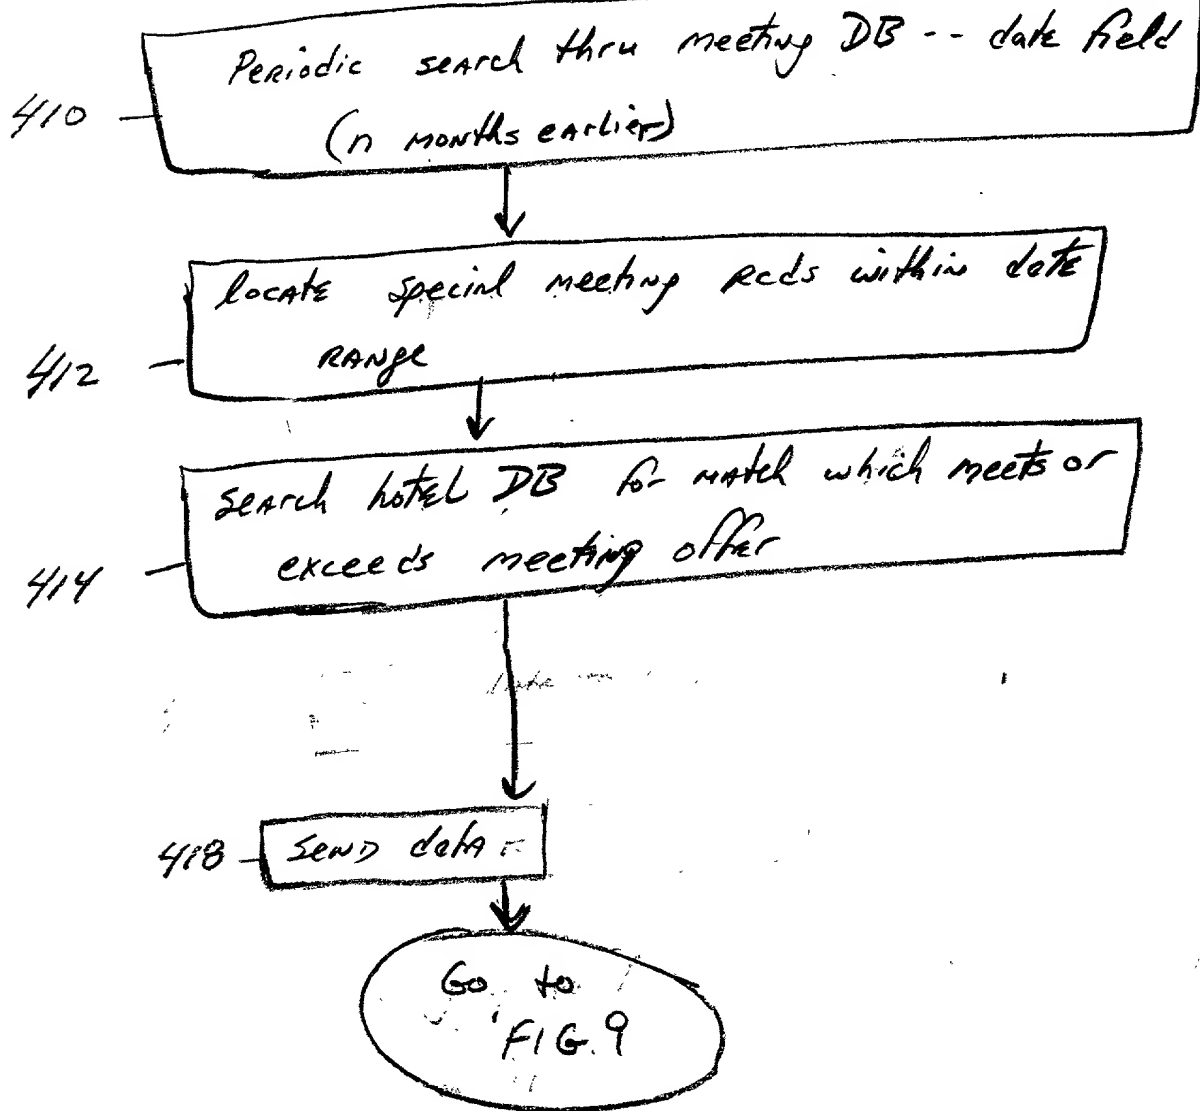 Periodic search thru meeting DB -- date field
(n months earlier)
410
locate special meeting rcds within date
range
412
search hotel DB for match which meets or
exceeds meeting offer
414
send data
418
Go to
FIG. 9